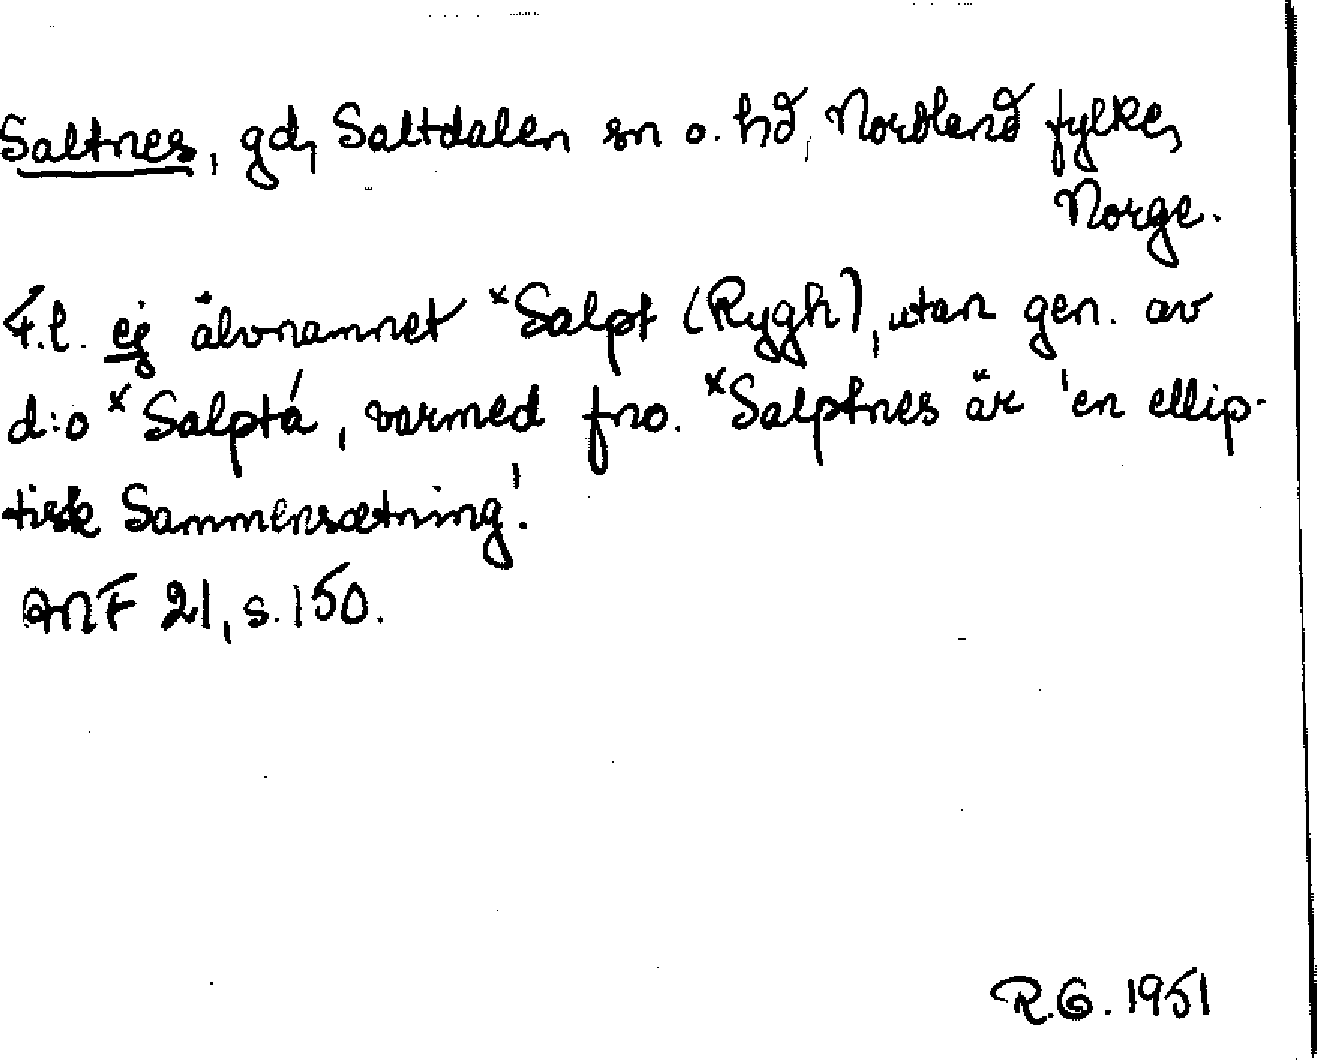 Saltnes, gd, Saltdalen sn o. hd, Nordland fylke,
Norge.
F.l. ej älvnamnet *Salpt (Rygh), utan gen. av
d:o *Salptá, varmed fno. *Salptnes är 'en ellip-
tisk Sammensætning'.
ANF 21, s. 150.
R.G. 1951